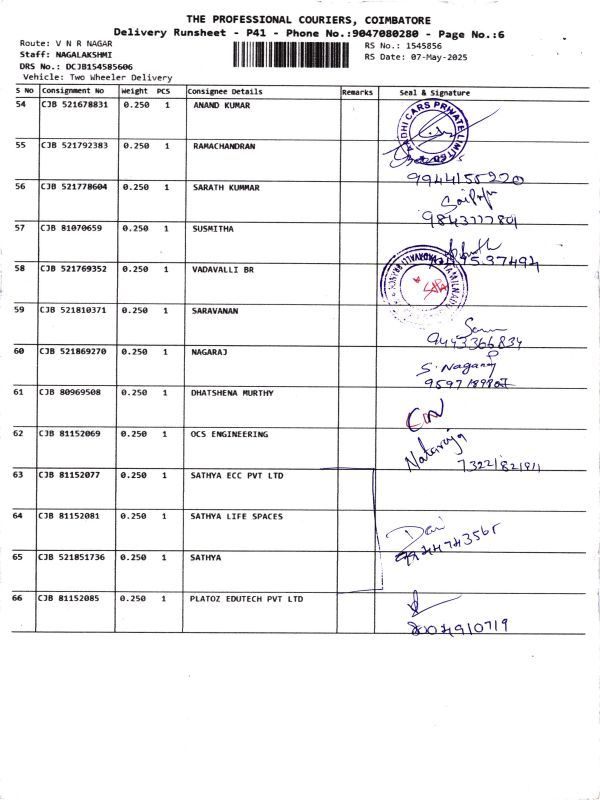 THE PROFESSIONAL COURIERS, COIMBATORE
Delivery Runsheet - P41 - Phone No.:9047080280 - Page No.:6
Route: V N R NAGAR RS No.: 1545856
Staff: NAGALAKSHMI RS Date: 07-May-2025
DRS No.: DCJB154585606
Vehicle: Two Wheeler Delivery
S No Consignment No Weight PCS Consignee Details Remarks Seal & Signature
54 CJB 521678831 0.250 1 ANAND KUMAR
55 CJB 521792383 0.250 1 RAMACHANDRAN
9944155220
56 CJB 521778604 0.250 1 SARATH KUMMAR
57 CJB 81070659 0.250 1 SUSMITHA
58 CJB 521769352 0.250 1 VADAVALLI BR
59 CJB 521810371 0.250 1 SARAVANAN
9443366834
60 CJB 521869270 0.250 1 NAGARAJ
S. Nagaraj
61 CJB 80969508 0.250 1 DHATSHENA MURTHY
62 CJB 81152069 0.250 1 OCS ENGINEERING
Nataraja
63 CJB 81152077 0.250 1 SATHYA ECC PVT LTD
64 CJB 81152081 0.250 1 SATHYA LIFE SPACES
65 CJB 521851736 0.250 1 SATHYA
66 CJB 81152085 0.250 1 PLATOZ EDUTECH PVT LTD